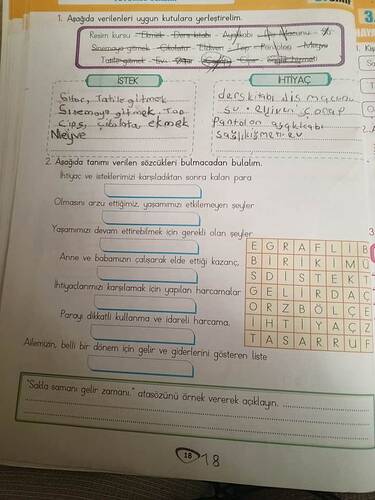 1. Aşağıda verilenleri uygun kutulara yerleştirelim.
Resim kursu Ekmek Ders kitabı Ayakkabı Diş Macunu Su
Sinemaya gitmek Çikolata Eldiven Top Pantolon Meyve
Tatile gitmek Ev Cips sağlık hizmeti
İSTEK
İHTİYAÇ
Gitar, Tatile gitmek
Sinemaya gitmek, Top
Cips, Çikolata, ekmek
Meyve
ders kitabı diş macunu
su eldiven çorap
Pantolon
ev
2. Aşağıda tanımı verilen sözcükleri bulmacadan bulalım.
İhtiyaç ve isteklerimizi karşıladıktan sonra kalan para
Olmasını arzu ettiğimiz, yaşamımızı etkilemeyen şeyler
Yaşamımızı devam ettirebilmek için gerekli olan şeyler
Anne ve babamızın çalışarak elde ettiği kazanç,
İhtiyaçlarımızı karşılamak için yapılan harcamalar
Parayı dikkatli kullanma ve idareli harcama,
Ailemizin, belli bir dönem için gelir ve giderlerini gösteren liste
E G R A F L I B
B İ R İ K İ M Ü
S D İ S T E K T
G E L İ R D A Ç
O R Z B Ö L Ç E
İ H T İ Y A Ç Z
T A S A R R U F
"Sakla samanı gelir zamanı." atasözünü örnek vererek açıklayın.
18 18